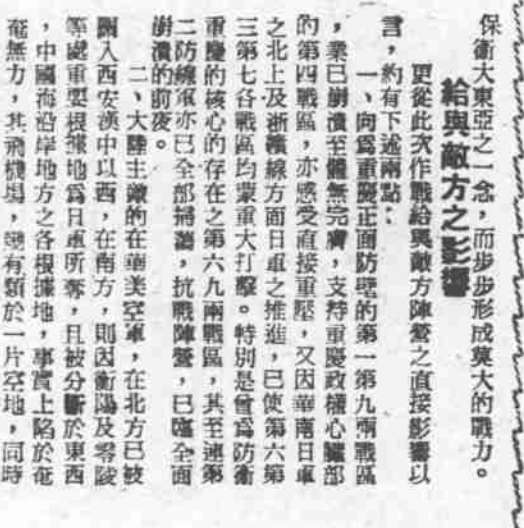 保衞大東亞之一念，而步步形成莫大的戰力。
給與敵方之影響
更從此次作戰給與敵方陣營之直接影響以
言，約有下述兩點：
一、向爲重慶正面防壁的第一第九兩戰區
，業已崩潰至體無完膚，支持重慶政權心臟部
的第四戰區，亦感受直接重壓，又因華南日軍
之北上及浙贛線方面日軍之推進，已使第六第
三第七各戰區均蒙重大打擊。特別是曾爲防衞
重慶的核心的存在之第六九兩戰區，其至連第
二防線軍亦已全部掃蕩，抗戰陣營，已臨全面
崩潰的前夜。
二、大陸主敵的在華美空軍，在北方已被
闢入西安漢中以西，在南方，則因衡陽及零陵
等處重要根據地爲日軍所奪，且被分斷於東西
，中國海沿岸地方之各根據地，事實上陷於奄
奄無力，其飛機場，變有類於一片空地，同時